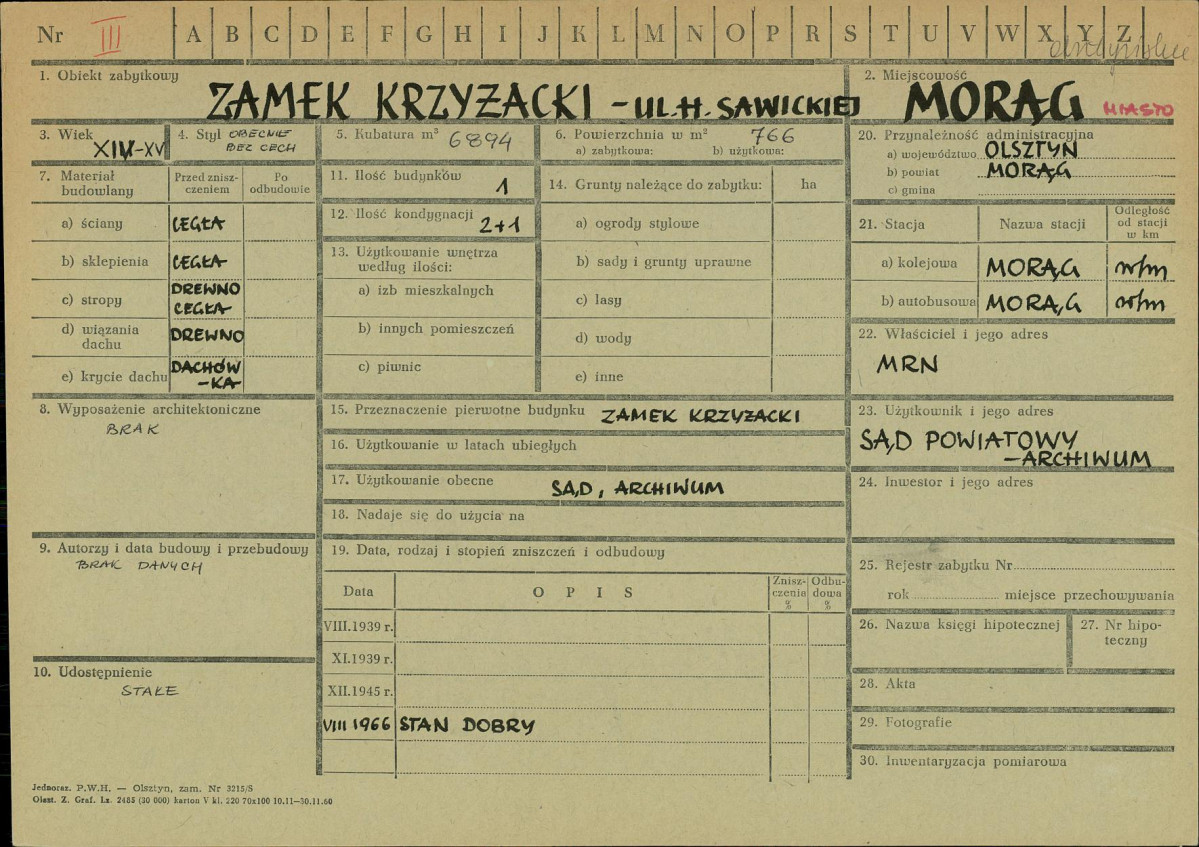 Nr III A B C D E F G H I J K L M N O P R S T U V W X Y Z
1. Obiekt zabytkowy
ZAMEK KRZYŻACKI - UL. H. SAWICKIEJ
2. Miejscowość
MORĄG MIASTO
3. Wiek
XIV-XV
4. Styl OBECNIE
BEZ CECH
5. Kubatura m³ 6894
6. Powierzchnia w m² 766
a) zabytkowa: b) użytkowa:
7. Materiał
budowlany
Przed znisz-
czeniem
Po
odbudowie
a) ściany CEGŁA
b) sklepienia CEGŁA
c) stropy DREWNO
CEGŁA
d) wiązania
dachu
DREWNO
e) krycie dachu DACHÓW
-KA
8. Wyposażenie architektoniczne
BRAK
9. Autorzy i data budowy i przebudowy
BRAK DANYCH
10. Udostępnienie
STAŁE
11. Ilość budynków 1
12. Ilość kondygnacji 2+1
13. Użytkowanie wnętrza
według ilości:
a) izb mieszkalnych
b) innych pomieszczeń
c) piwnic
14. Grunty należące do zabytku: ha
a) ogrody stylowe
b) sady i grunty uprawne
c) lasy
d) wody
e) inne
15. Przeznaczenie pierwotne budynku ZAMEK KRZYŻACKI
16. Użytkowanie w latach ubiegłych
17. Użytkowanie obecne SĄD, ARCHIWUM
18. Nadaje się do użycia na
19. Data, rodzaj i stopień zniszczeń i odbudowy
Data
OPIS
Znisz-
czenia
%
Odbu-
dowa
%
VIII.1939 r.
XI.1939 r.
XII.1945 r.
VIII 1966 STAN DOBRY
20. Przynależność administracyjna
a) województwo OLSZTYN
b) powiat MORĄG
c) gmina
21. Stacja
Nazwa stacji
Odległość
od stacji
w km
a) kolejowa MORĄG
b) autobusowa MORĄG
22. Właściciel i jego adres
MRN
23. Użytkownik i jego adres
SĄD POWIATOWY
-ARCHIWUM
24. Inwestor i jego adres
25. Rejestr zabytku Nr
rok miejsce przechowywania
26. Nazwa księgi hipotecznej
27. Nr hipo-
teczny
28. Akta
29. Fotografie
30. Inwentaryzacja pomiarowa
Jednoraz. P.W.H. — Olsztyn, zam. Nr 3215/S
Olszt. Z. Graf. Lz. 2485 (30 000) karton V kl. 220 70x100 10.11—30.11.60